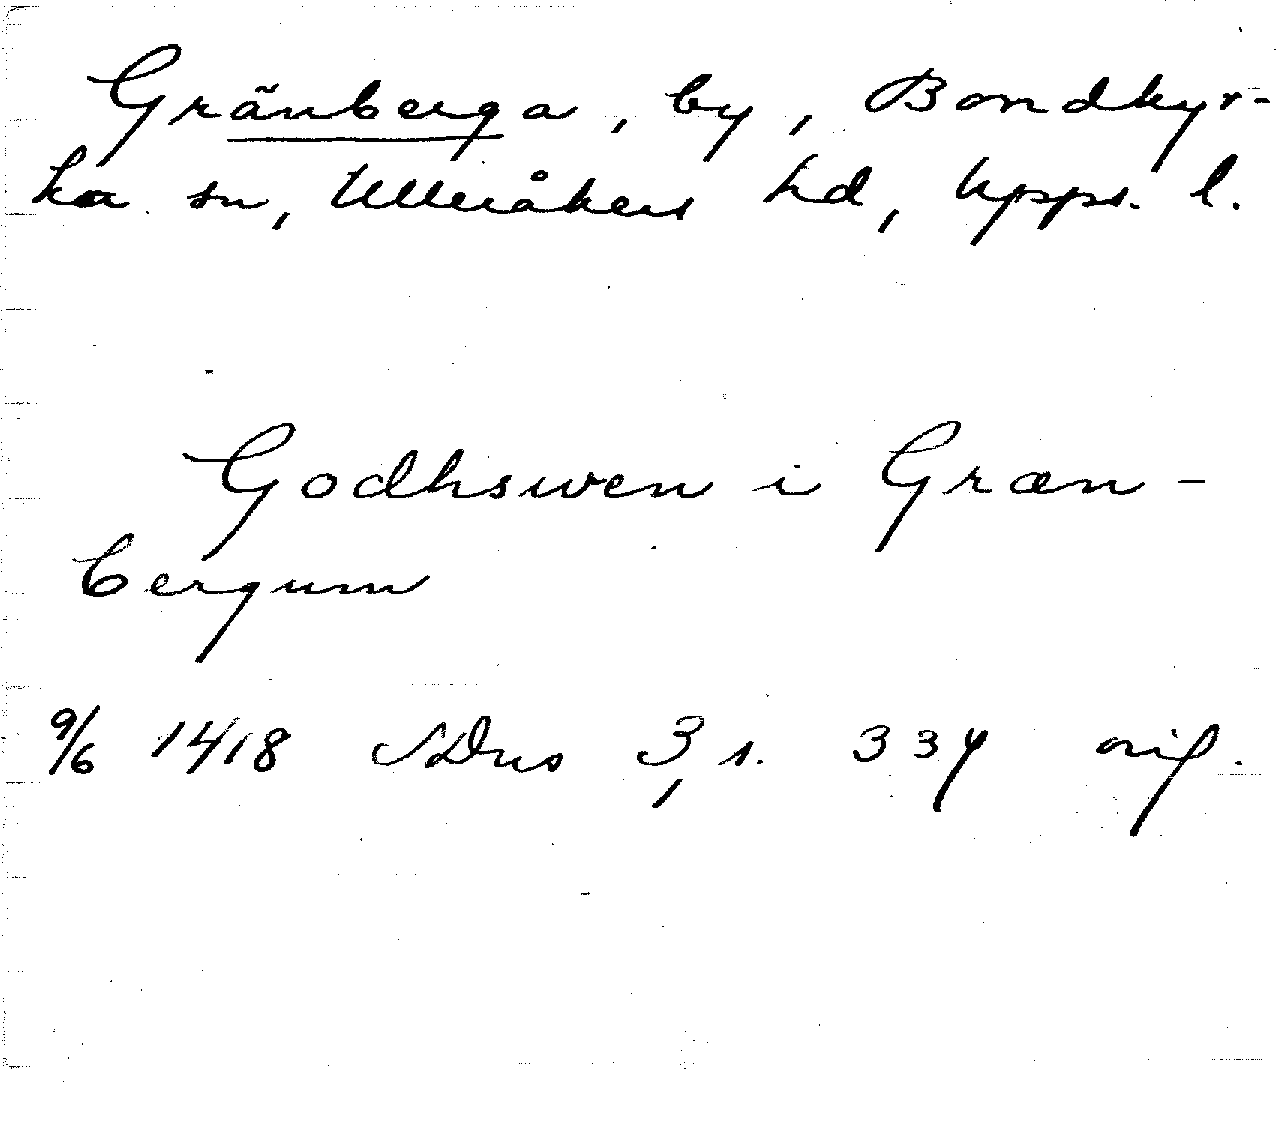 Gränberga, by, Bondkyr-
ka sn, Ulleråkers hd, Upps. l.
Godhswen i Græn-
bergum
9/6 1418 SDns 3, s. 334 orig.